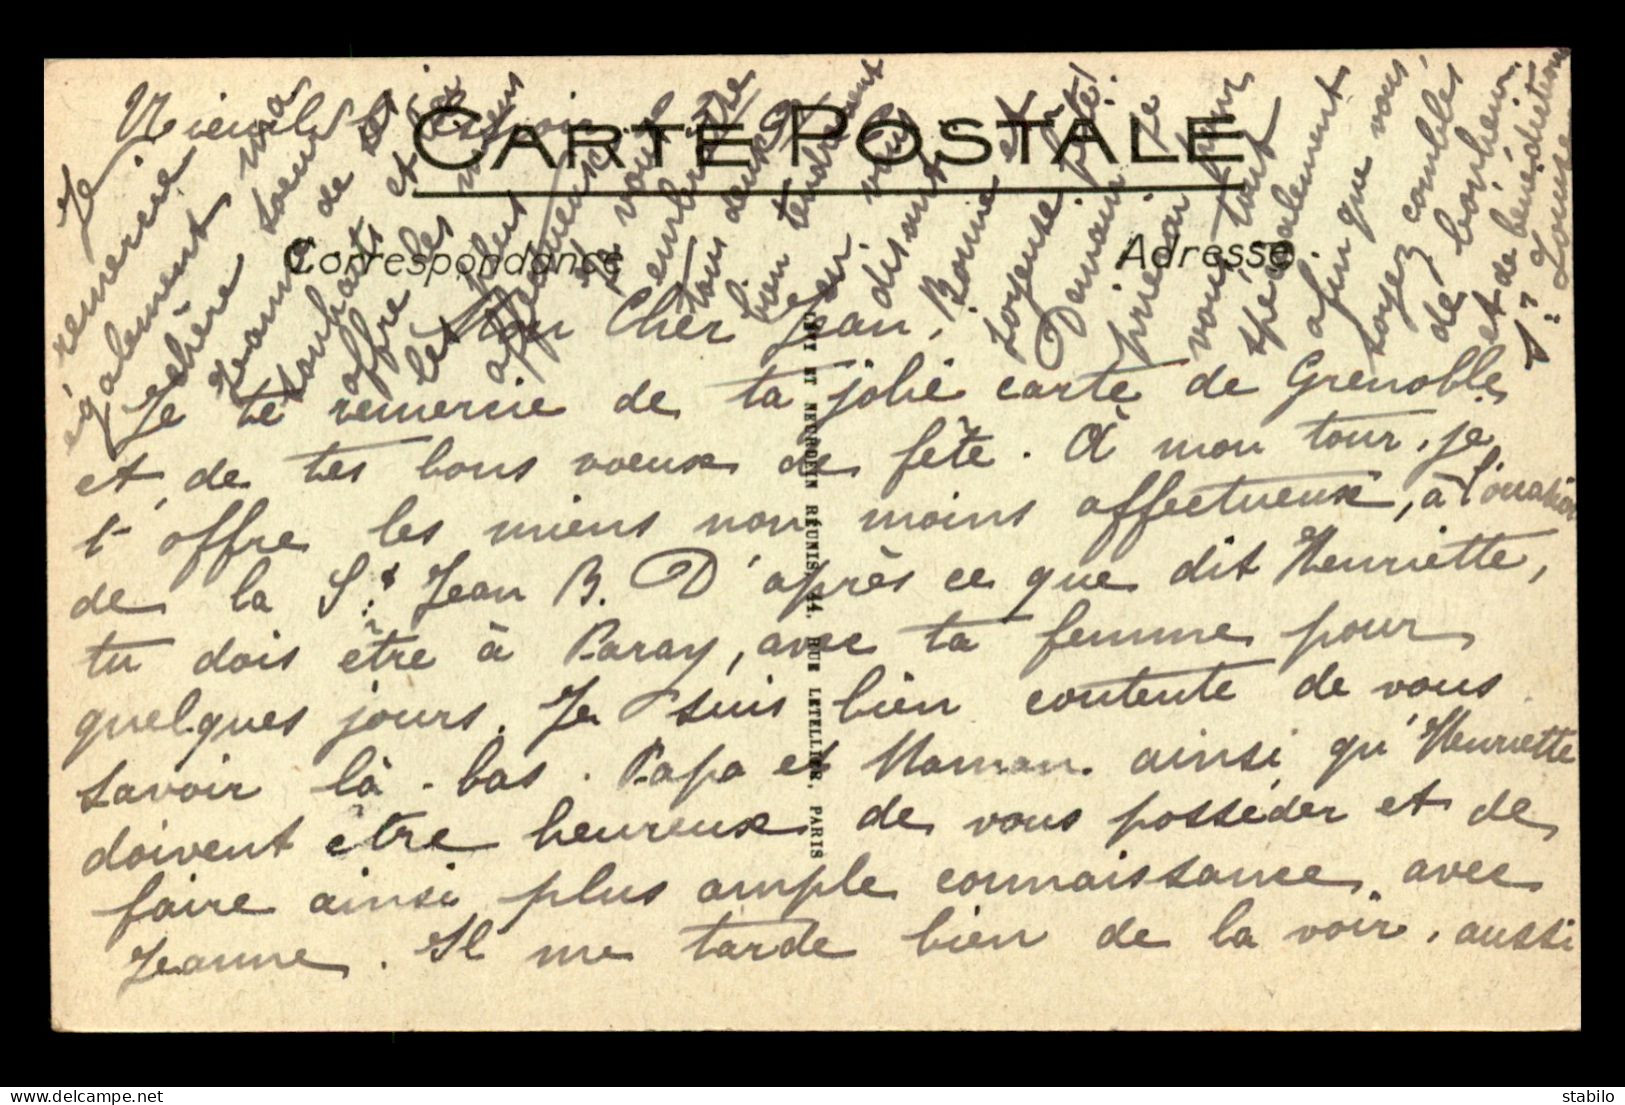 CARTE POSTALE
Correspondance
Adresse
Mon Cher Jean,
Je te remercie de ta jolie carte de Grenoble
et de tes bons voeux de fête. A mon tour, je
t'offre les miens non moins affectueux, à l'occasion
de la St Jean B. D'après ce que dit Henriette,
tu dois être à Paray, avec ta femme pour
quelques jours. Je suis bien contente de vous
savoir là-bas. Papa et Maman ainsi qu'Henriette
doivent être heureux de vous posséder et de
faire ainsi plus ample connaissance avec
Jeanne. Il me tarde bien de la voir, aussi
Je
remercie
également ma
chère soeur
Jeanne de ses
souhaits et lui
offre les miens
affectueux
Je vous
embrasse
tous deux
bien tendrement
en vous
disant
Bonne et
joyeuse fête!
Demain je
prierai pour
vous tout
spécialement
afin que vous
soyez comblés
de bonheur
et de bénédictions
Sr Louise
ET NEURDEIN RÉUNIS, 44, RUE LETELLIER, PARIS
stabilo